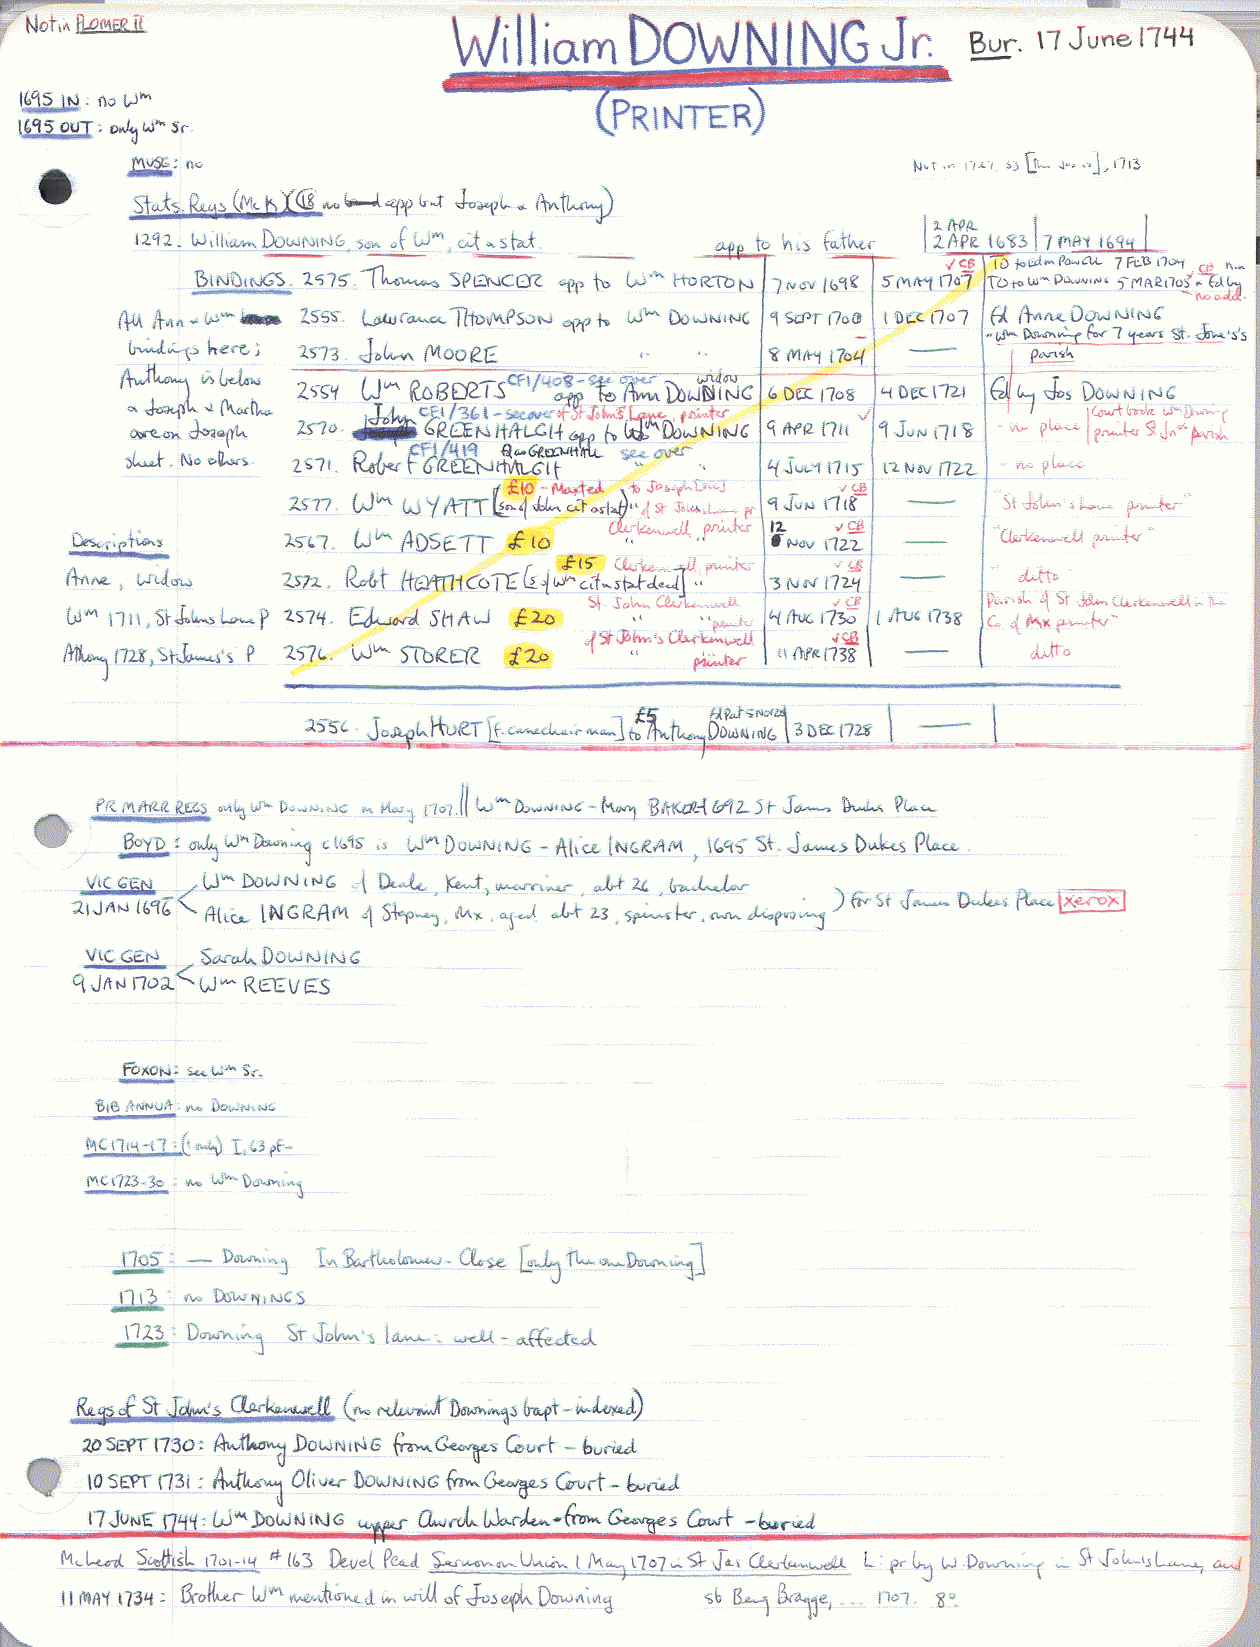 Not in PLOMER II
William DOWNING Jr. Bur. 17 June 1744
(PRINTER)
1695 IN: no Wm
1695 OUT: only Wm Sr.
MUSE: no
Not in 1727, 33 [], 1713
Stats. Regs (McK) (18 no app but Joseph & Anthony)
2 APR
1292. William DOWNING, son of Wm, cit & stat. app to his father 2 APR 1683 7 MAY 1694
✓ CB TO to Edm Powell 7 FEB 1704
BINDINGS. 2575. Thomas SPENCER app to Wm HORTON 7 NOV 1698 5 MAY 1707 TO to Wm DOWNING 5 MAR 1705 & Fd by
✓ CB
no add.
All Ann & Wm 2555. Lawrance THOMPSON app to Wm DOWNING 9 SEPT 1700 1 DEC 1707 Fd Anne DOWNING
"Wm Downing for 7 years St. Jone's's
bindings here; 2573. John MOORE " " 8 MAY 1704 — parish
Anthony is below 2554 Wm ROBERTS CF1/408 - see over app to Ann DOWNING widow 6 DEC 1708 4 DEC 1721 Fd by Jos DOWNING
& Joseph & Martha John CF1/361 - see over of St John's Lane, printer ✓ Court book Wm Downing
are on Joseph 2570. GREENHALGH app to Wm DOWNING 9 APR 1711 9 JUN 1718 - no place printer St Jn's parish
CF1/419 GREENHALL see over
sheet. No others. 2571. Robert GREENHALGH " " 4 JULY 1715 12 NOV 1722 - no place
£10 - Masted to Joseph ✓ CB
2577. Wm WYATT [son of John cit & stat] " of St Johns Lane pr 9 JUN 1718 — "St John's Lane printer"
Clerkenwell printer ✓ CB
Descriptions 2567. Wm ADSETT £10 " " 12 NOV 1722 — "Clerkenwell printer"
£15 Clerkenwell printer ✓ CB
Anne, Widow 2572. Robt HEATHCOTE [s of Wm cit & stat decd] " 3 NOV 1724 — " ditto "
St John Clerkenwell ✓ CB Parish of St John Clerkenwell in the
Wm 1711, St Johns Lane P 2574. Edward SHAW £20 " " printer 4 AUG 1730 1 AUG 1738 Co. of Mx printer"
of St John's Clerkenwell ✓ CB
Athony 1728, St James's P 2576. Wm STORER £20 " printer 11 APR 1738 — ditto
£5 Fd Pat 5 Nov 28
2556. Joseph HURT [f. canechairman] to Anthony DOWNING 3 DEC 1728 —
PR MARR REGS only Wm DOWNING m Mary 1707. || Wm DOWNING - Mary BAKER 1692 St James Dukes Place
BOYD: only Wm Downing c1695 is Wm DOWNING - Alice INGRAM, 1695 St. James Dukes Place.
VIC GEN Wm DOWNING of Deale, Kent, marriner, abt 26, bachelor
21 JAN 1696 Alice INGRAM of Stepney, Mx, aged abt 23, spinster, own disposing ) for St James Dukes Place xerox
VIC GEN Sarah DOWNING
9 JAN 1702 Wm REEVES
FOXON: see Wm Sr.
BIB ANNUA: no DOWNING
MC 1714-17: (1 only) I, 63 pf-
MC 1723-30: no Wm Downing
1705: — Downing In Bartholomew-Close [only the one Downing]
1713: no DOWNINGS
1723: Downing St John's lane: well-affected
Regs of St John's Clerkenwell (no relevant Downings bapt - indexed)
20 SEPT 1730: Anthony DOWNING from Georges Court - buried
10 SEPT 1731: Anthony Oliver DOWNING from Georges Court - buried
17 JUNE 1744: Wm DOWNING upper Church Warden - from Georges Court - buried
McLeod Scottish 1701-14 #163 Devel Pead Sermon on Union 1 May 1707 in St Jas Clerkenwell L: pr by W. Downing in St John's Lane, and
11 MAY 1734: Brother Wm mentioned in will of Joseph Downing sb Benj Bragge, ... 1707. 8°.